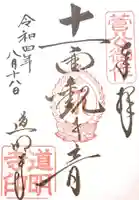 奉拝
十一面観世音
道明寺
令和四年
八月十八日
道明
寺印